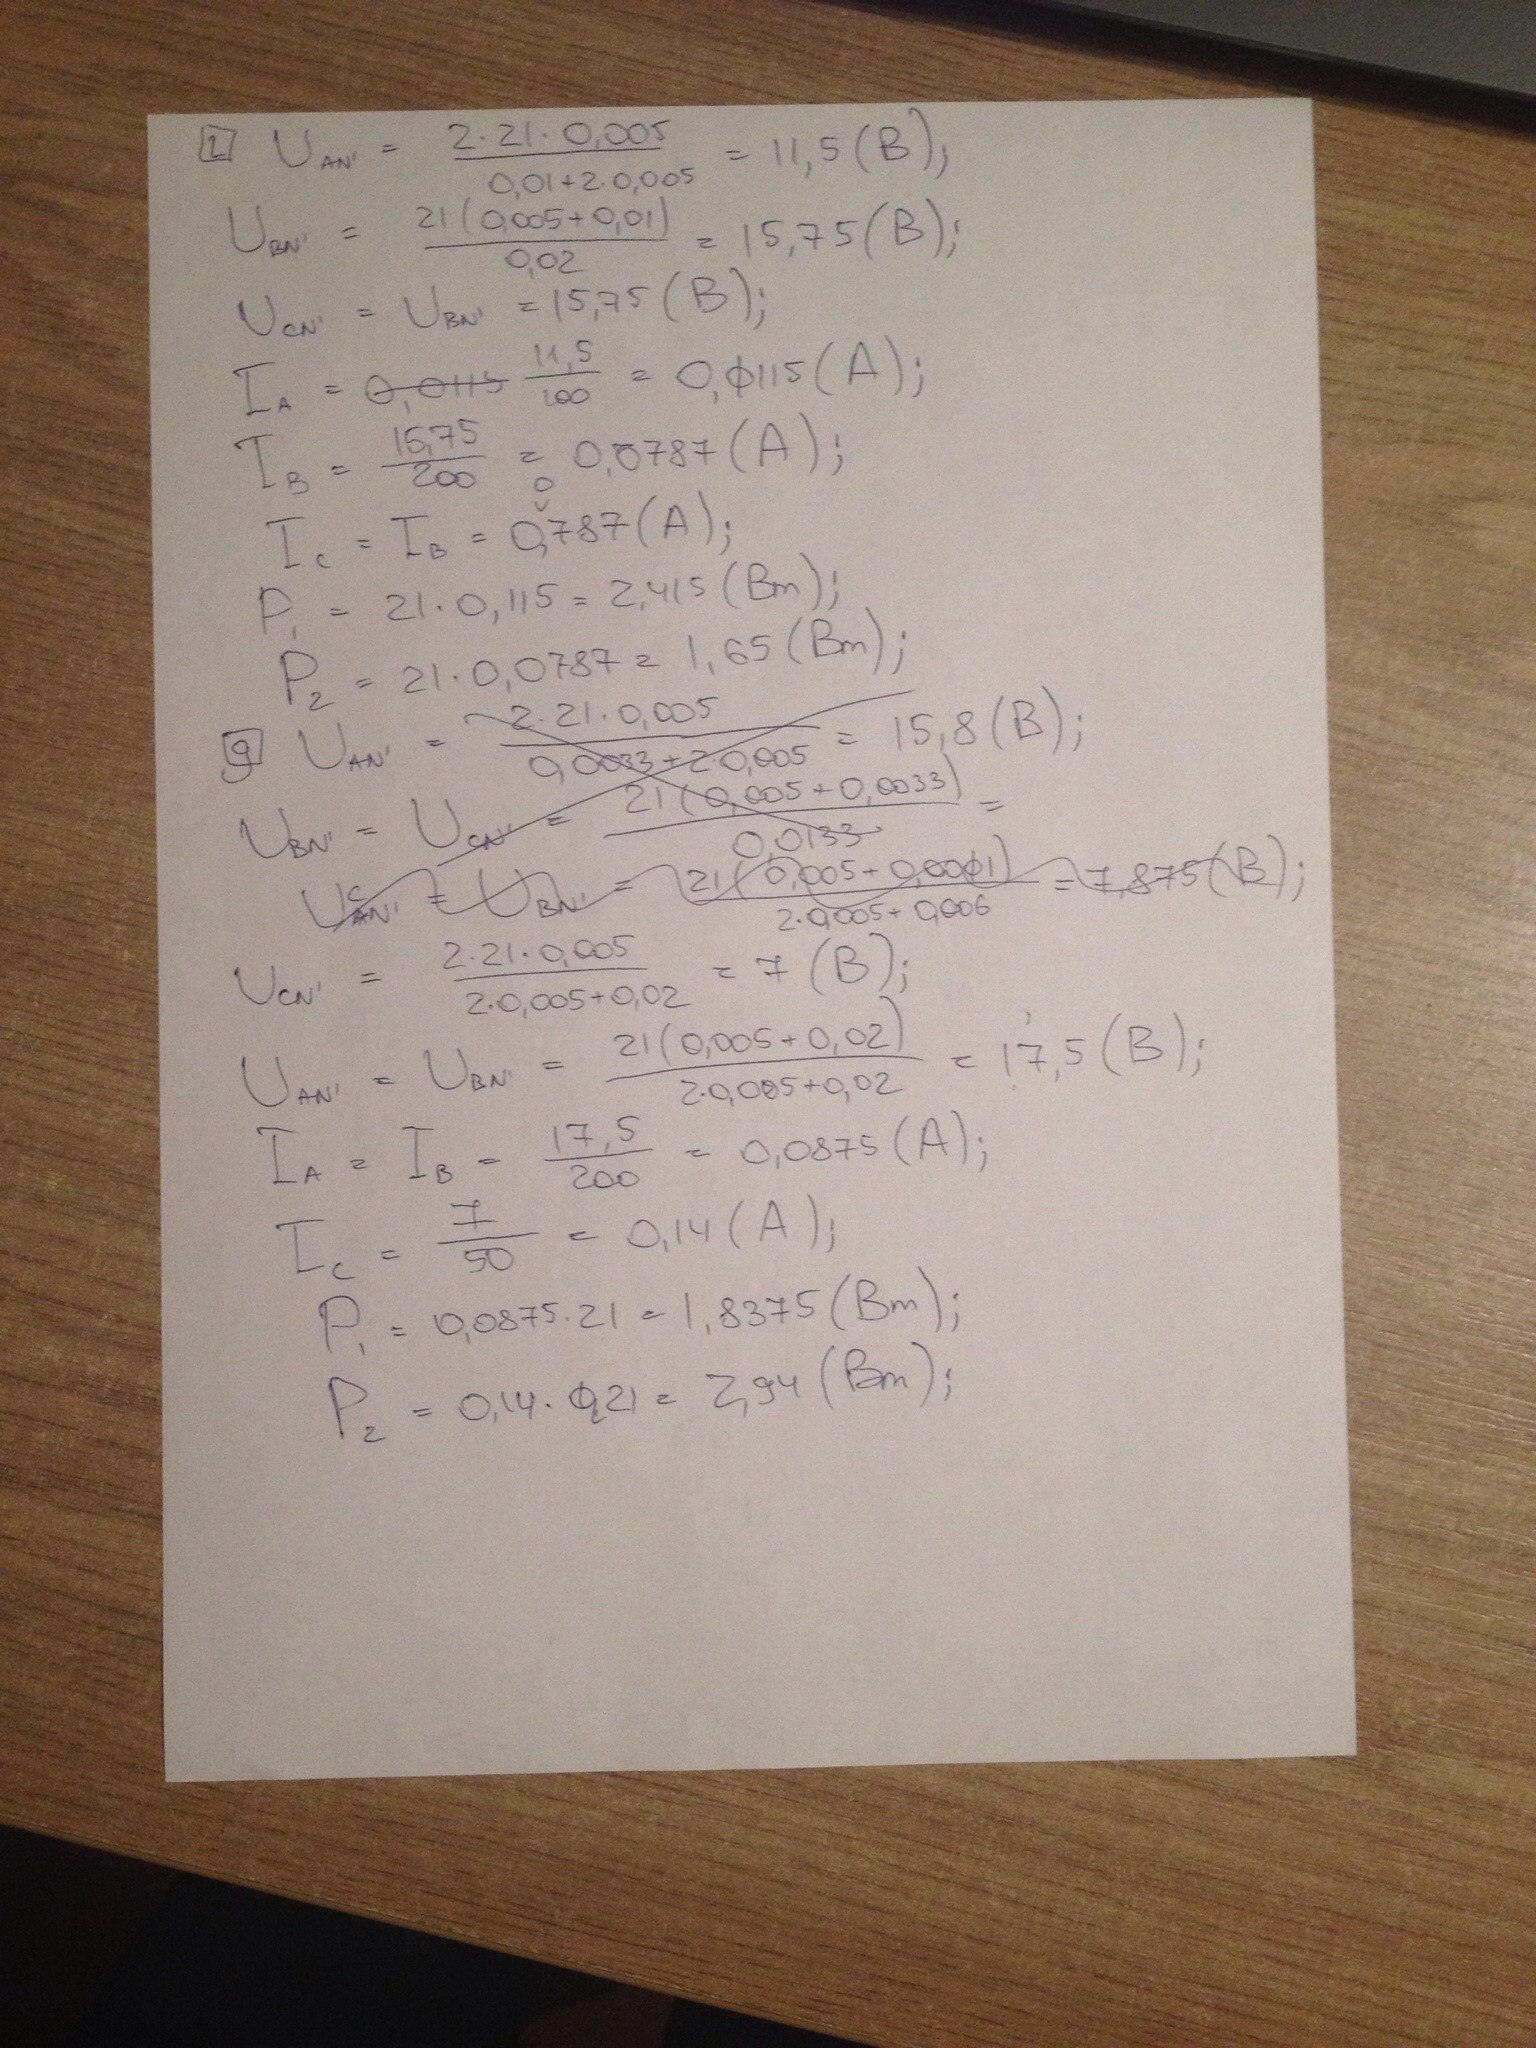 1 U_AN' = 2·21·0,005 / 0,01+2·0,005 = 11,5 (В);
U_BN' = 21(0,005+0,01) / 0,02 = 15,75 (В);
U_CN' = U_BN' = 15,75 (В);
I_A = 0,0115 11,5 / 100 = 0,0115 (А);
I_B = 15,75 / 200 = 0,0787 (А);
I_C = I_B = 0,0787 (А);
P_1 = 21·0,115 = 2,415 (Вт);
P_2 = 21·0,0787 = 1,65 (Вт);
g U_AN' = 2·21·0,005 / 0,0033+2·0,005 = 15,8 (В);
U_BN' = U_CN' = 21(0,005+0,0033) / 0,0133 =
U_AN' = U_BN' = 21(0,005+0,001) / 2·0,005+0,006 = 7,875 (В);
U_CN' = 2·21·0,005 / 2·0,005+0,02 = 7 (В);
U_AN' = U_BN' = 21(0,005+0,02) / 2·0,005+0,02 = 17,5 (В);
I_A = I_B = 17,5 / 200 = 0,0875 (А);
I_C = 7 / 50 = 0,14 (А);
P_1 = 0,0875·21 = 1,8375 (Вт);
P_2 = 0,14·21 = 2,94 (Вт);